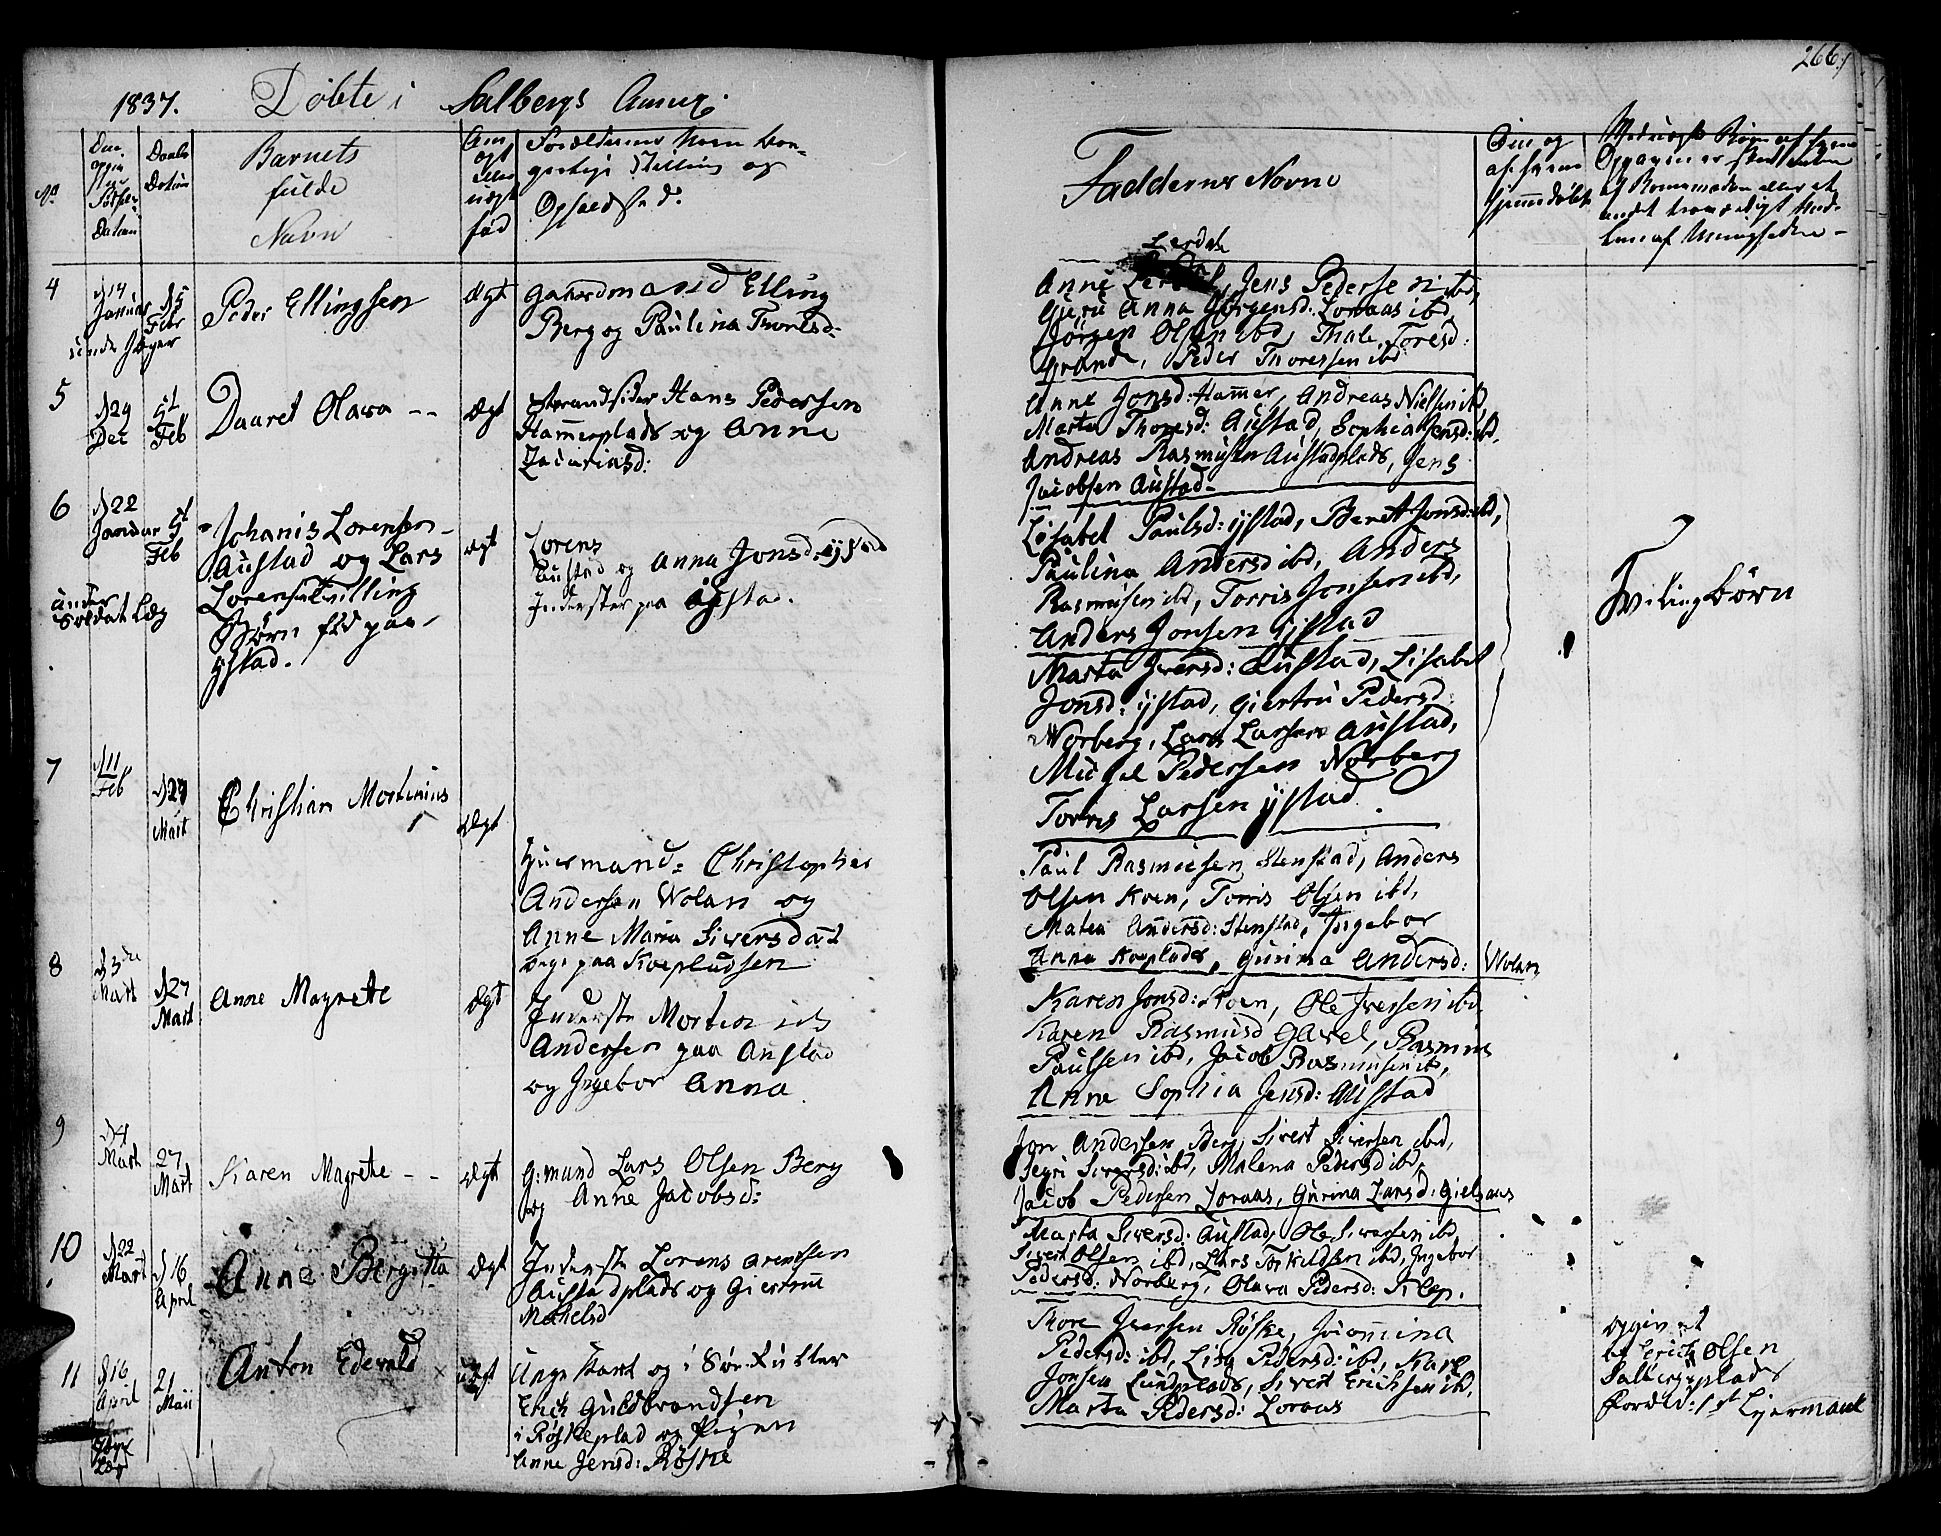 266.
1837. Döbte i Salbergs Annex.
No
Barnets
fulde
Navn
Daabs
Datum
ægt
eller
uægt
fød
Forældrenes Navn
Stilling og
Opholdsted.
Faddernes Navne
4
d 14
Januar
d 5
Febr
Peder Ellingsen
Ægt
Gaardmand Elling
Berg og Paulina Thoresd:
Lerdal
Anne, Jens Pedersen ibd,
Guru Anna Jörgensd: Loraas ibd,
Jörgen Olsen ibd, Thale Toresd:
Grande, Peder Thoressen ibd
5
d 29
Dec
5t
Feb
Daaret Olava --
Ægt
Strandsider Hans Pedersen
Hammerplads og Anne
Zacariasd:
Anne Jonsd: Hammer, Andreas Nielsen ibd,
Marta Thoresd: Austad, Sophia Jensd: ibd,
Andreas Rasmusen Austadplads, Jens
Jacobsen Austad-
6
d 22
Januar
5t
Feb
under
Soldat Læg
Johanis Lorensen
Austad og Lars
Lorensen Tvilling
Börn fød paa
ystad.
Ægt
Lorens
Austad og Anna Jonsd: ystad
Inderster paa ystad.
Lisabet Paulsd: ystad, Beret Jonsd: ibd,
Paulina Andersd ibd, Anders
Rasmusen ibd, Torris Jonsen ibd,
Anders Jonsen ystad
Marta Iversd: Austad, Lisabet
Jonsd: ystad, Giertru Pedersd:
Norberg, Lars Larsen Austad,
Michel Pedersen Norberg
Torris Larsen ystad.
Tvilingbörn
7
d 11
Feb
d 27
Mart
Christian Mortinius
Ægt
Huusmand: Christopher
Andersen Wolan og
Anne Maria Siversdat
paa Koepladsen
Paul Rasmusen Stenstad, Anders
Olsen Koen, Torris Olsen ibd,
Matea Andersd: Stenstad, Ingebor
Anna Koeplads, Gurina Andersd: Wolan
8
Mart
d 27
Mart
Anne Magrete
Ægt
Inderste Morten
Andersen paa Austad
og Ingebor Anna
Karen Jonsd: Koen, Ole Iversen ibd
Karen Rasmusd Gavel, Rasmus
Paulsen ibd, Jacob Rasmusen ib,
Anne Sophia Jensd: Austad
9
d 4
Mart
27
Mart
Karen Magrete --
Ægt
G:mand Lars Olsen Berg
og Anne Jacobsd:
Jon Andersen Berg, Sivert Siversen ibd,
Segri Siversd: ibd, Malena Pedersd ibd,
Jacob Pedersen Loraas, Gurina Larsd: Gielsaas
10
d 22
Mart
d 16
April
Anne Bergitta
Ægt
Inderste Lorens Arentsen
Austadplads og Giertrue
Mekelsd
Marta Siversd: Austad, Ole Siversen ibd,
Sivert Olsen ibd, Lars Torkildsen ibd, Ingebor
Pedersd: Norberg, Olava Pedersd: Klep.
11
d 16
April
21
Maii
Anton Edevald
uægt
Ungekarl og
Erich Guldbrandsen
i Röskeplad og Pigen
Anne Jensd: Röske
Thore Iversen Röske, Jacomina
Pedersd: ibd, Lisa Pedersd: ibd, Karl
Jonsen Lundplads, Sivert Erichsen ibd,
Marta Pedersd: Loraas
opgivet
Erich Olsen
Salbergsplads
Foræld: 1st Leiermaal